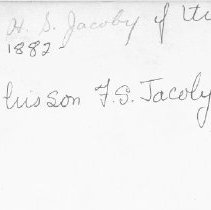 H. S. Jacoby of
1882-
his son F. S. Jacoby